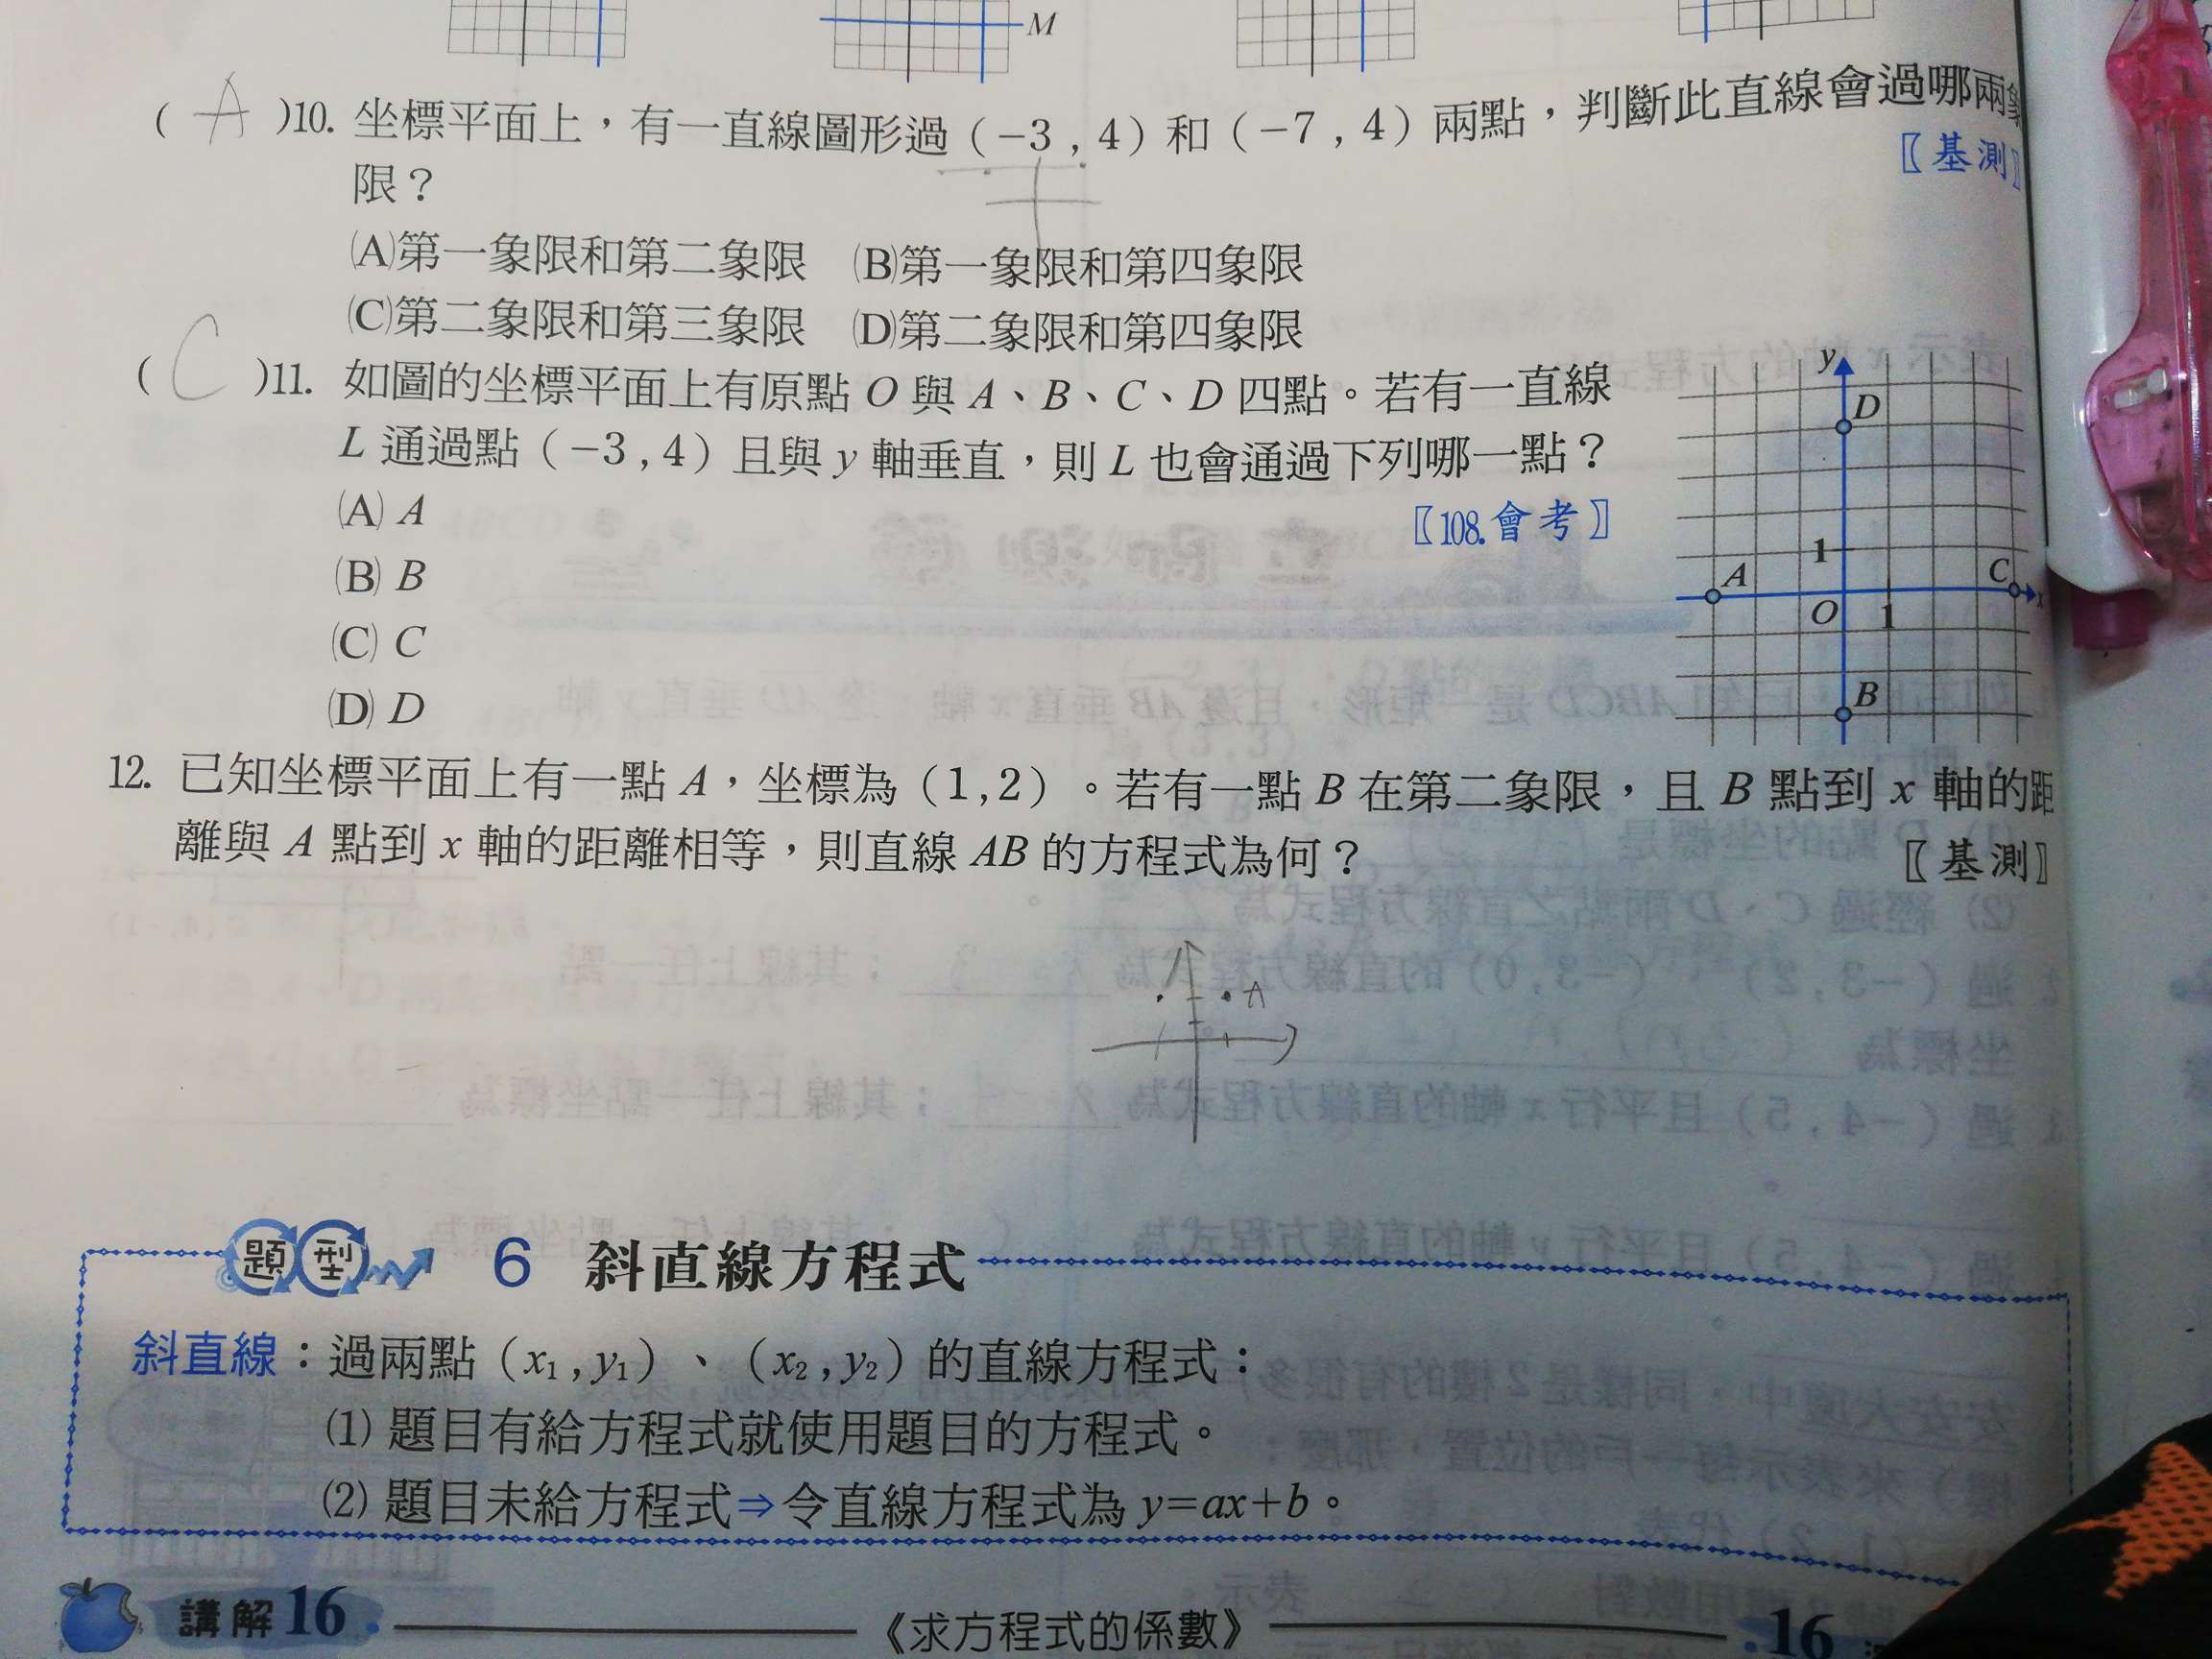 M
( A )10. 坐標平面上，有一直線圖形過（-3，4）和（-7，4）兩點，判斷此直線會過哪兩象
限？
〖基測〗
(A)第一象限和第二象限 (B)第一象限和第四象限
(C)第二象限和第三象限 (D)第二象限和第四象限
( C )11. 如圖的坐標平面上有原點 O 與 A、B、C、D 四點。若有一直線
L 通過點（-3，4）且與 y 軸垂直，則 L 也會通過下列哪一點？
〖108.會考〗
(A) A
(B) B
(C) C
(D) D
y
D
1
A
C
x
O
1
B
12. 已知坐標平面上有一點 A，坐標為（1，2）。若有一點 B 在第二象限，且 B 點到 x 軸的距
離與 A 點到 x 軸的距離相等，則直線 AB 的方程式為何？
〖基測〗
A
題型 6 斜直線方程式
斜直線：過兩點（x₁，y₁）、（x₂，y₂）的直線方程式：
(1) 題目有給方程式就使用題目的方程式。
(2) 題目未給方程式⇒令直線方程式為 y=ax+b。
講解 16
《求方程式的係數》
16